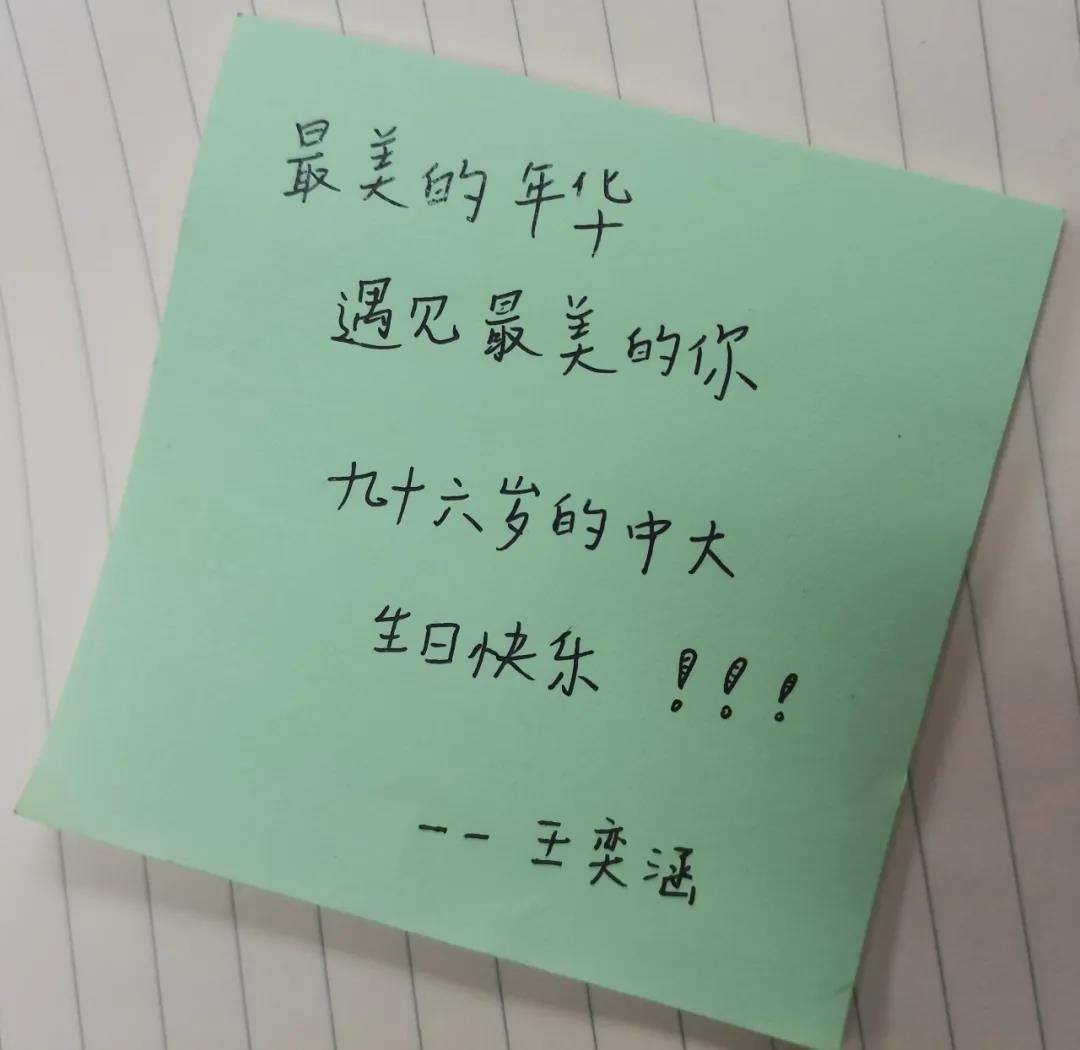 最美的年华
遇见最美的你
九十六岁的中大
生日快乐!!!
--王奕涵